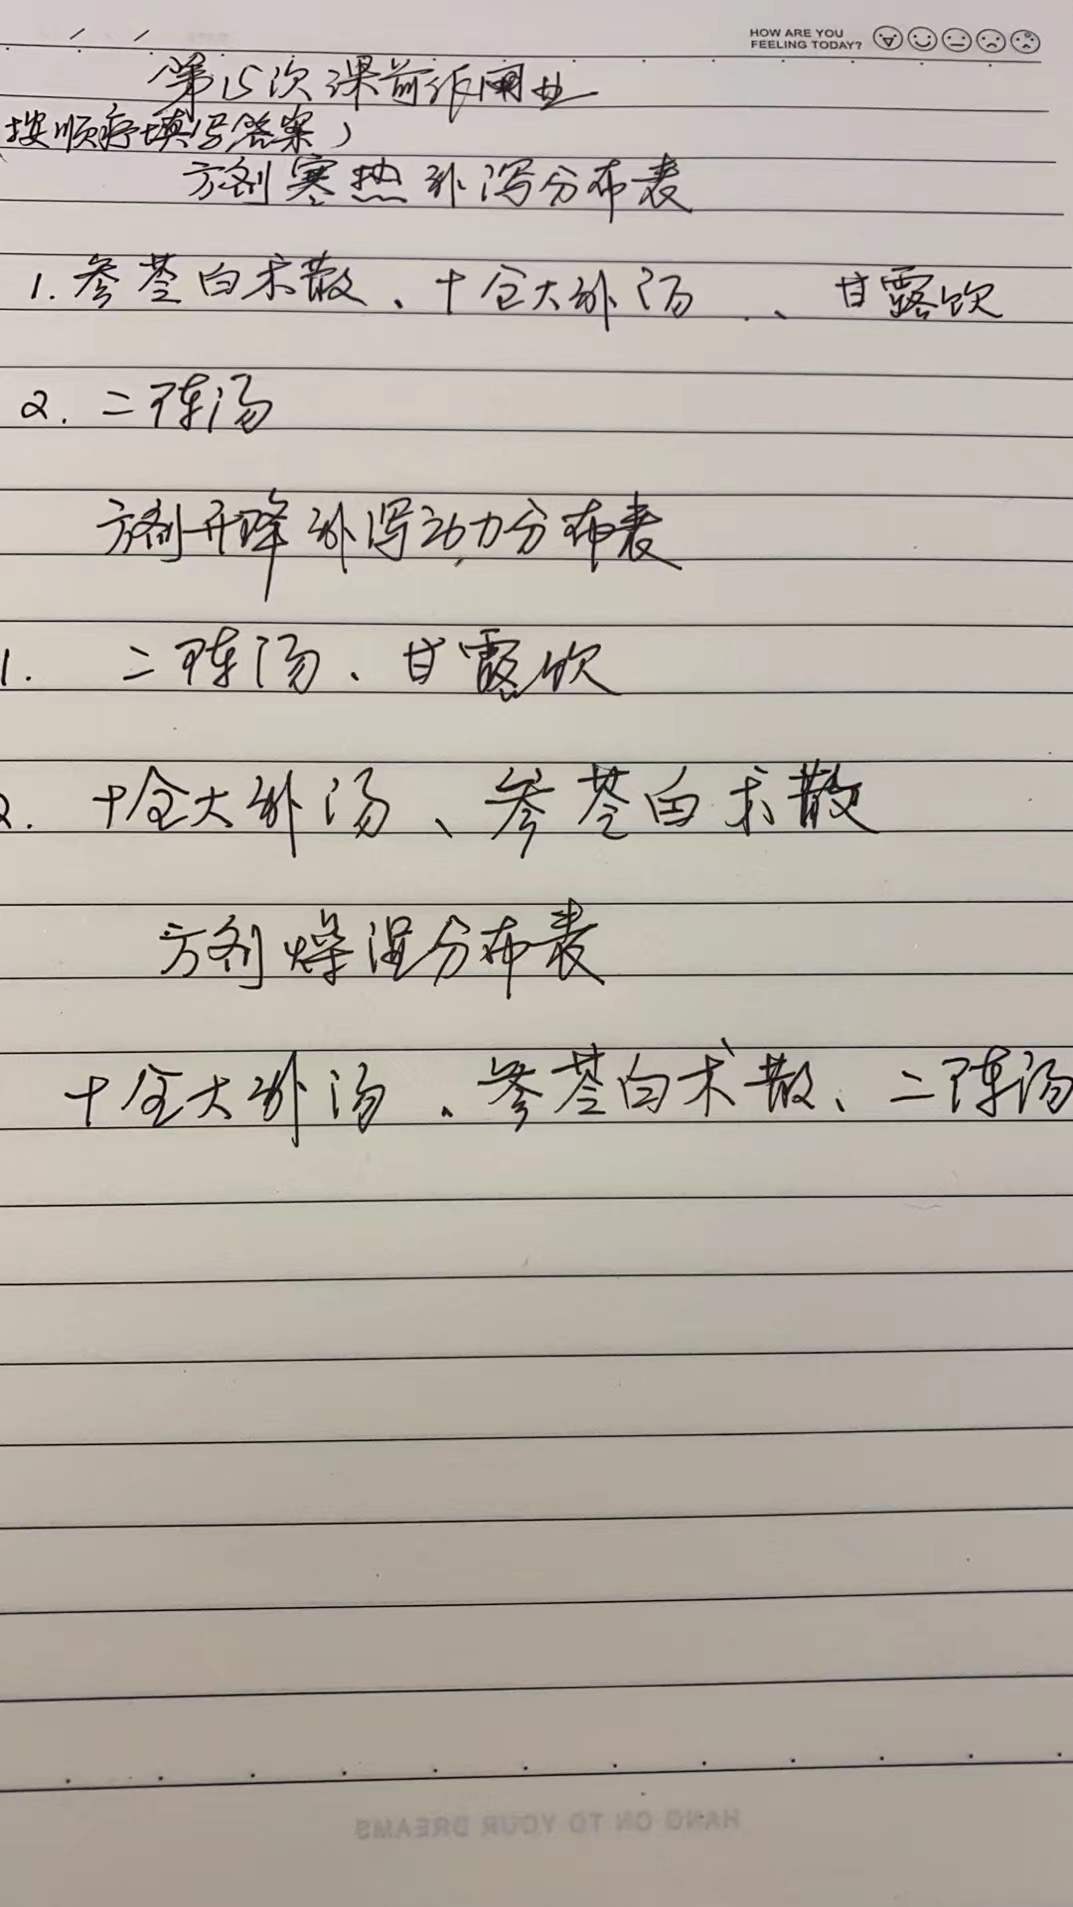 HOW ARE YOU
FEELING TODAY?
第15次课前作业
按顺序填写答案)
方剂寒热补泻分布表
1. 参苓白术散、十全大补汤、甘露饮
2. 二陈汤
方剂升降补泻动力分布表
1. 二陈汤、甘露饮
2. 十全大补汤、参苓白术散
方剂燥湿分布表
十全大补汤、参苓白术散、二陈汤
HANG ON TO YOUR DREAMS